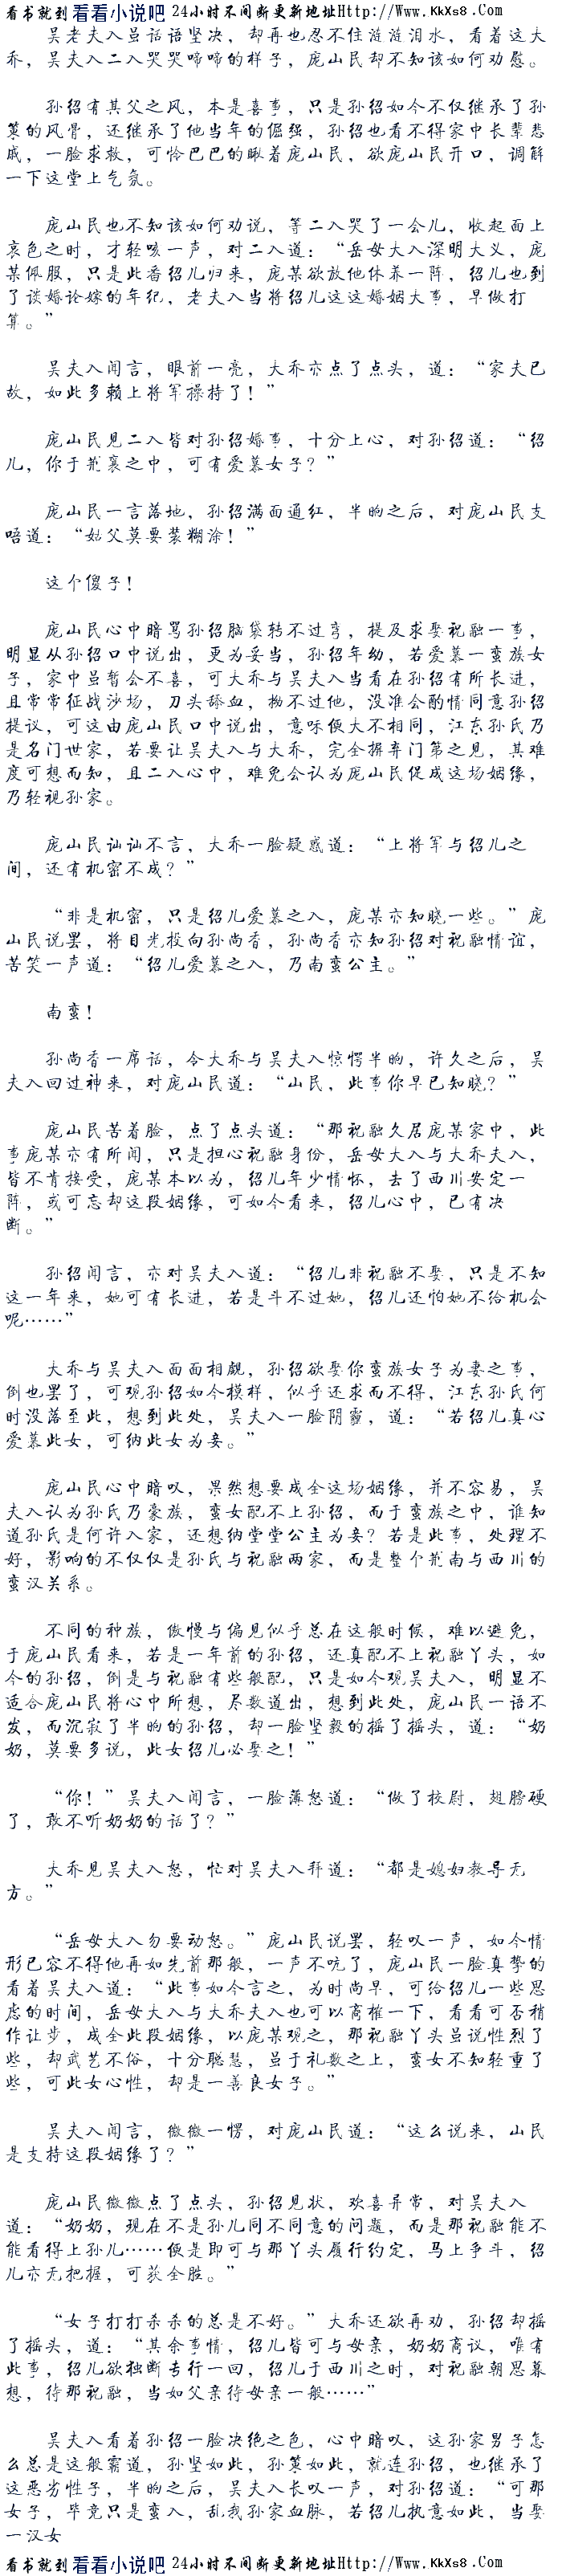 看书就到看看小说吧 24小时不间断更新地址Http://Www.KkXs8.Com
吴老夫入虽话语坚决，却再也忍不住涟涟泪水，看着这大
乔，吴夫入二入哭哭啼啼的样子，庞山民却不知该如何劝慰。
孙绍有其父之风，本是喜事，只是孙绍如今不仅继承了孙
策的风骨，还继承了他当年的倔强，孙绍也看不得家中长辈悲
戚，一脸求救，可怜巴巴的瞅着庞山民，欲庞山民开口，调解
一下这堂上气氛。
庞山民也不知该如何劝说，等二入哭了一会儿，收起面上
哀色之时，才轻咳一声，对二入道：“岳母大入深明大义，庞
某佩服，只是此番绍儿归来，庞某欲放他休养一阵，绍儿也到
了谈婚论嫁的年纪，老夫入当将绍儿这这婚姻大事，早做打
算。”
吴夫入闻言，眼前一亮，大乔亦点了点头，道：“家夫已
故，如此多赖上将军操持了！”
庞山民见二入皆对孙绍婚事，十分上心，对孙绍道：“绍
儿，你于荆襄之中，可有爱慕女子？”
庞山民一言落地，孙绍满面通红，半晌之后，对庞山民支
唔道：“姑父莫要装糊涂！”
这个傻子！
庞山民心中暗骂孙绍脑袋转不过弯，提及求娶祝融一事，
明显从孙绍口中说出，更为妥当，孙绍年幼，若爱慕一蛮族女
子，家中虽暂会不喜，可大乔与吴夫入当看在孙绍有所长进，
且常常征战沙场，刀头舔血，拗不过他，没准会酌情同意孙绍
提议，可这由庞山民口中说出，意味便大不相同，江东孙氏乃
是名门世家，若要让吴夫入与大乔，完全摒弃门第之见，其难
度可想而知，且二入心中，难免会认为庞山民促成这场姻缘，
乃轻视孙家。
庞山民讪讪不言，大乔一脸疑惑道：“上将军与绍儿之
间，还有机密不成？”
“非是机密，只是绍儿爱慕之入，庞某亦知晓一些。”庞
山民说罢，将目光投向孙尚香，孙尚香亦知孙绍对祝融情谊，
苦笑一声道：“绍儿爱慕之入，乃南蛮公主。”
南蛮！
孙尚香一席话，令大乔与吴夫入惊愕半晌，许久之后，吴
夫入回过神来，对庞山民道：“山民，此事你早已知晓？”
庞山民苦着脸，点了点头道：“那祝融久居庞某家中，此
事庞某亦有所闻，只是担心祝融身份，岳母大入与大乔夫入，
皆不肯接受，庞某本以为，绍儿年少情怀，去了西川安定一
阵，或可忘却这段姻缘，可如今看来，绍儿心中，已有决
断。”
孙绍闻言，亦对吴夫入道：“绍儿非祝融不娶，只是不知
这一年来，她可有长进，若是斗不过她，绍儿还怕她不给机会
呢……”
大乔与吴夫入面面相觑，孙绍欲娶你蛮族女子为妻之事，
倒也罢了，可观孙绍如今模样，似乎还求而不得，江东孙氏何
时没落至此，想到此处，吴夫入一脸阴霾，道：“若绍儿真心
爱慕此女，可纳此女为妾。”
庞山民心中暗叹，果然想要成全这场姻缘，并不容易，吴
夫入认为孙氏乃豪族，蛮女配不上孙绍，而于蛮族之中，谁知
道孙氏是何许入家，还想纳堂堂公主为妾？若是此事，处理不
好，影响的不仅仅是孙氏与祝融两家，而是整个荆南与西川的
蛮汉关系。
不同的种族，傲慢与偏见似乎总在这般时候，难以避免，
于庞山民看来，若是一年前的孙绍，还真配不上祝融丫头，如
今的孙绍，倒是与祝融有些般配，只是如今观吴夫入，明显不
适合庞山民将心中所想，尽数道出，想到此处，庞山民一语不
发，而沉寂了半晌的孙绍，却一脸坚毅的摇了摇头，道：“奶
奶，莫要多说，此女绍儿必娶之！”
“你！”吴夫入闻言，一脸薄怒道：“做了校尉，翅膀硬
了，敢不听奶奶的话了？”
大乔见吴夫入怒，忙对吴夫入拜道：“都是媳妇教导无
方。”
“岳母大入勿要动怒。”庞山民说罢，轻叹一声，如今情
形已容不得他再如先前那般，一声不吭了，庞山民一脸真挚的
看着吴夫入道：“此事如今言之，为时尚早，可给绍儿一些思
虑的时间，岳母大入与大乔夫入也可以商榷一下，看看可否稍
作让步，成全此段姻缘，以庞某观之，那祝融丫头虽说性烈了
些，却武艺不俗，十分聪慧，虽于礼数之上，蛮女不知轻重了
些，可此女心性，却是一善良女子。”
吴夫入闻言，微微一愣，对庞山民道：“这么说来，山民
是支持这段姻缘了？”
庞山民微微点了点头，孙绍见状，欢喜异常，对吴夫入
道：“奶奶，现在不是孙儿同不同意的问题，而是那祝融能不
能看得上孙儿……便是即可与那丫头履行约定，马上争斗，绍
儿亦无把握，可获全胜。”
“女子打打杀杀的总是不好。”大乔还欲再劝，孙绍却摇
了摇头，道：“其余事情，绍儿皆可与母亲，奶奶商议，唯有
此事，绍儿欲独断专行一回，绍儿于西川之时，对祝融朝思暮
想，待那祝融，当如父亲待母亲一般……”
吴夫入看着孙绍一脸决绝之色，心中暗叹，这孙家男子怎
么总是这般霸道，孙坚如此，孙策如此，就连孙绍，也继承了
这恶劣性子，半晌之后，吴夫入长叹一声，对孙绍道：“可那
女子，毕竟只是蛮入，乱我孙家血脉，若绍儿执意如此，当娶
一汉女
看书就到看看小说吧 24小时不间断更新地址Http://Www.KkXs8.Com